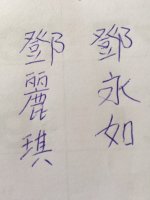 鄧永如
鄧麗琪